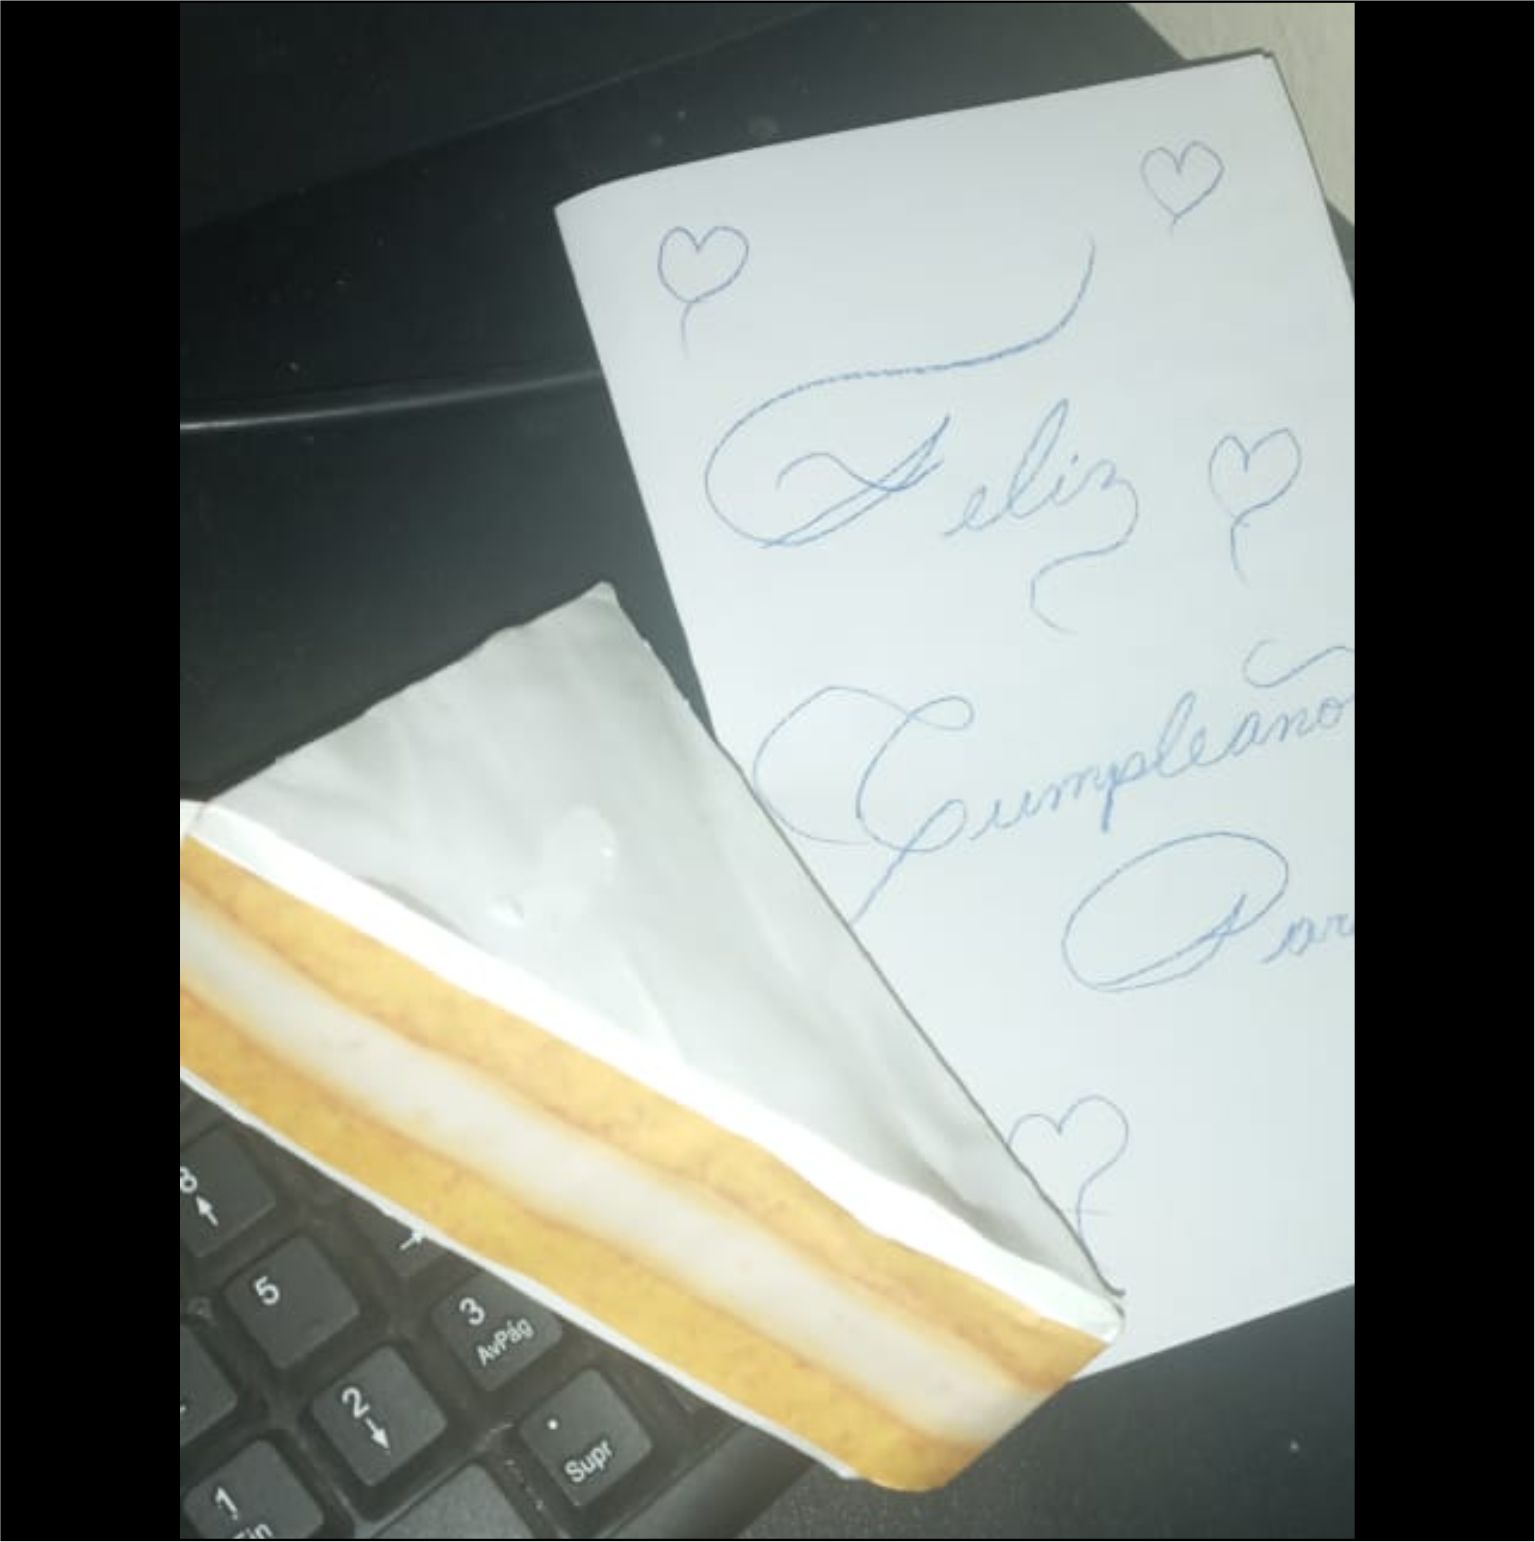 Feliz
Cumpleaño
Par
8
5
3
AvPág
2
.
Supr
1
Fin